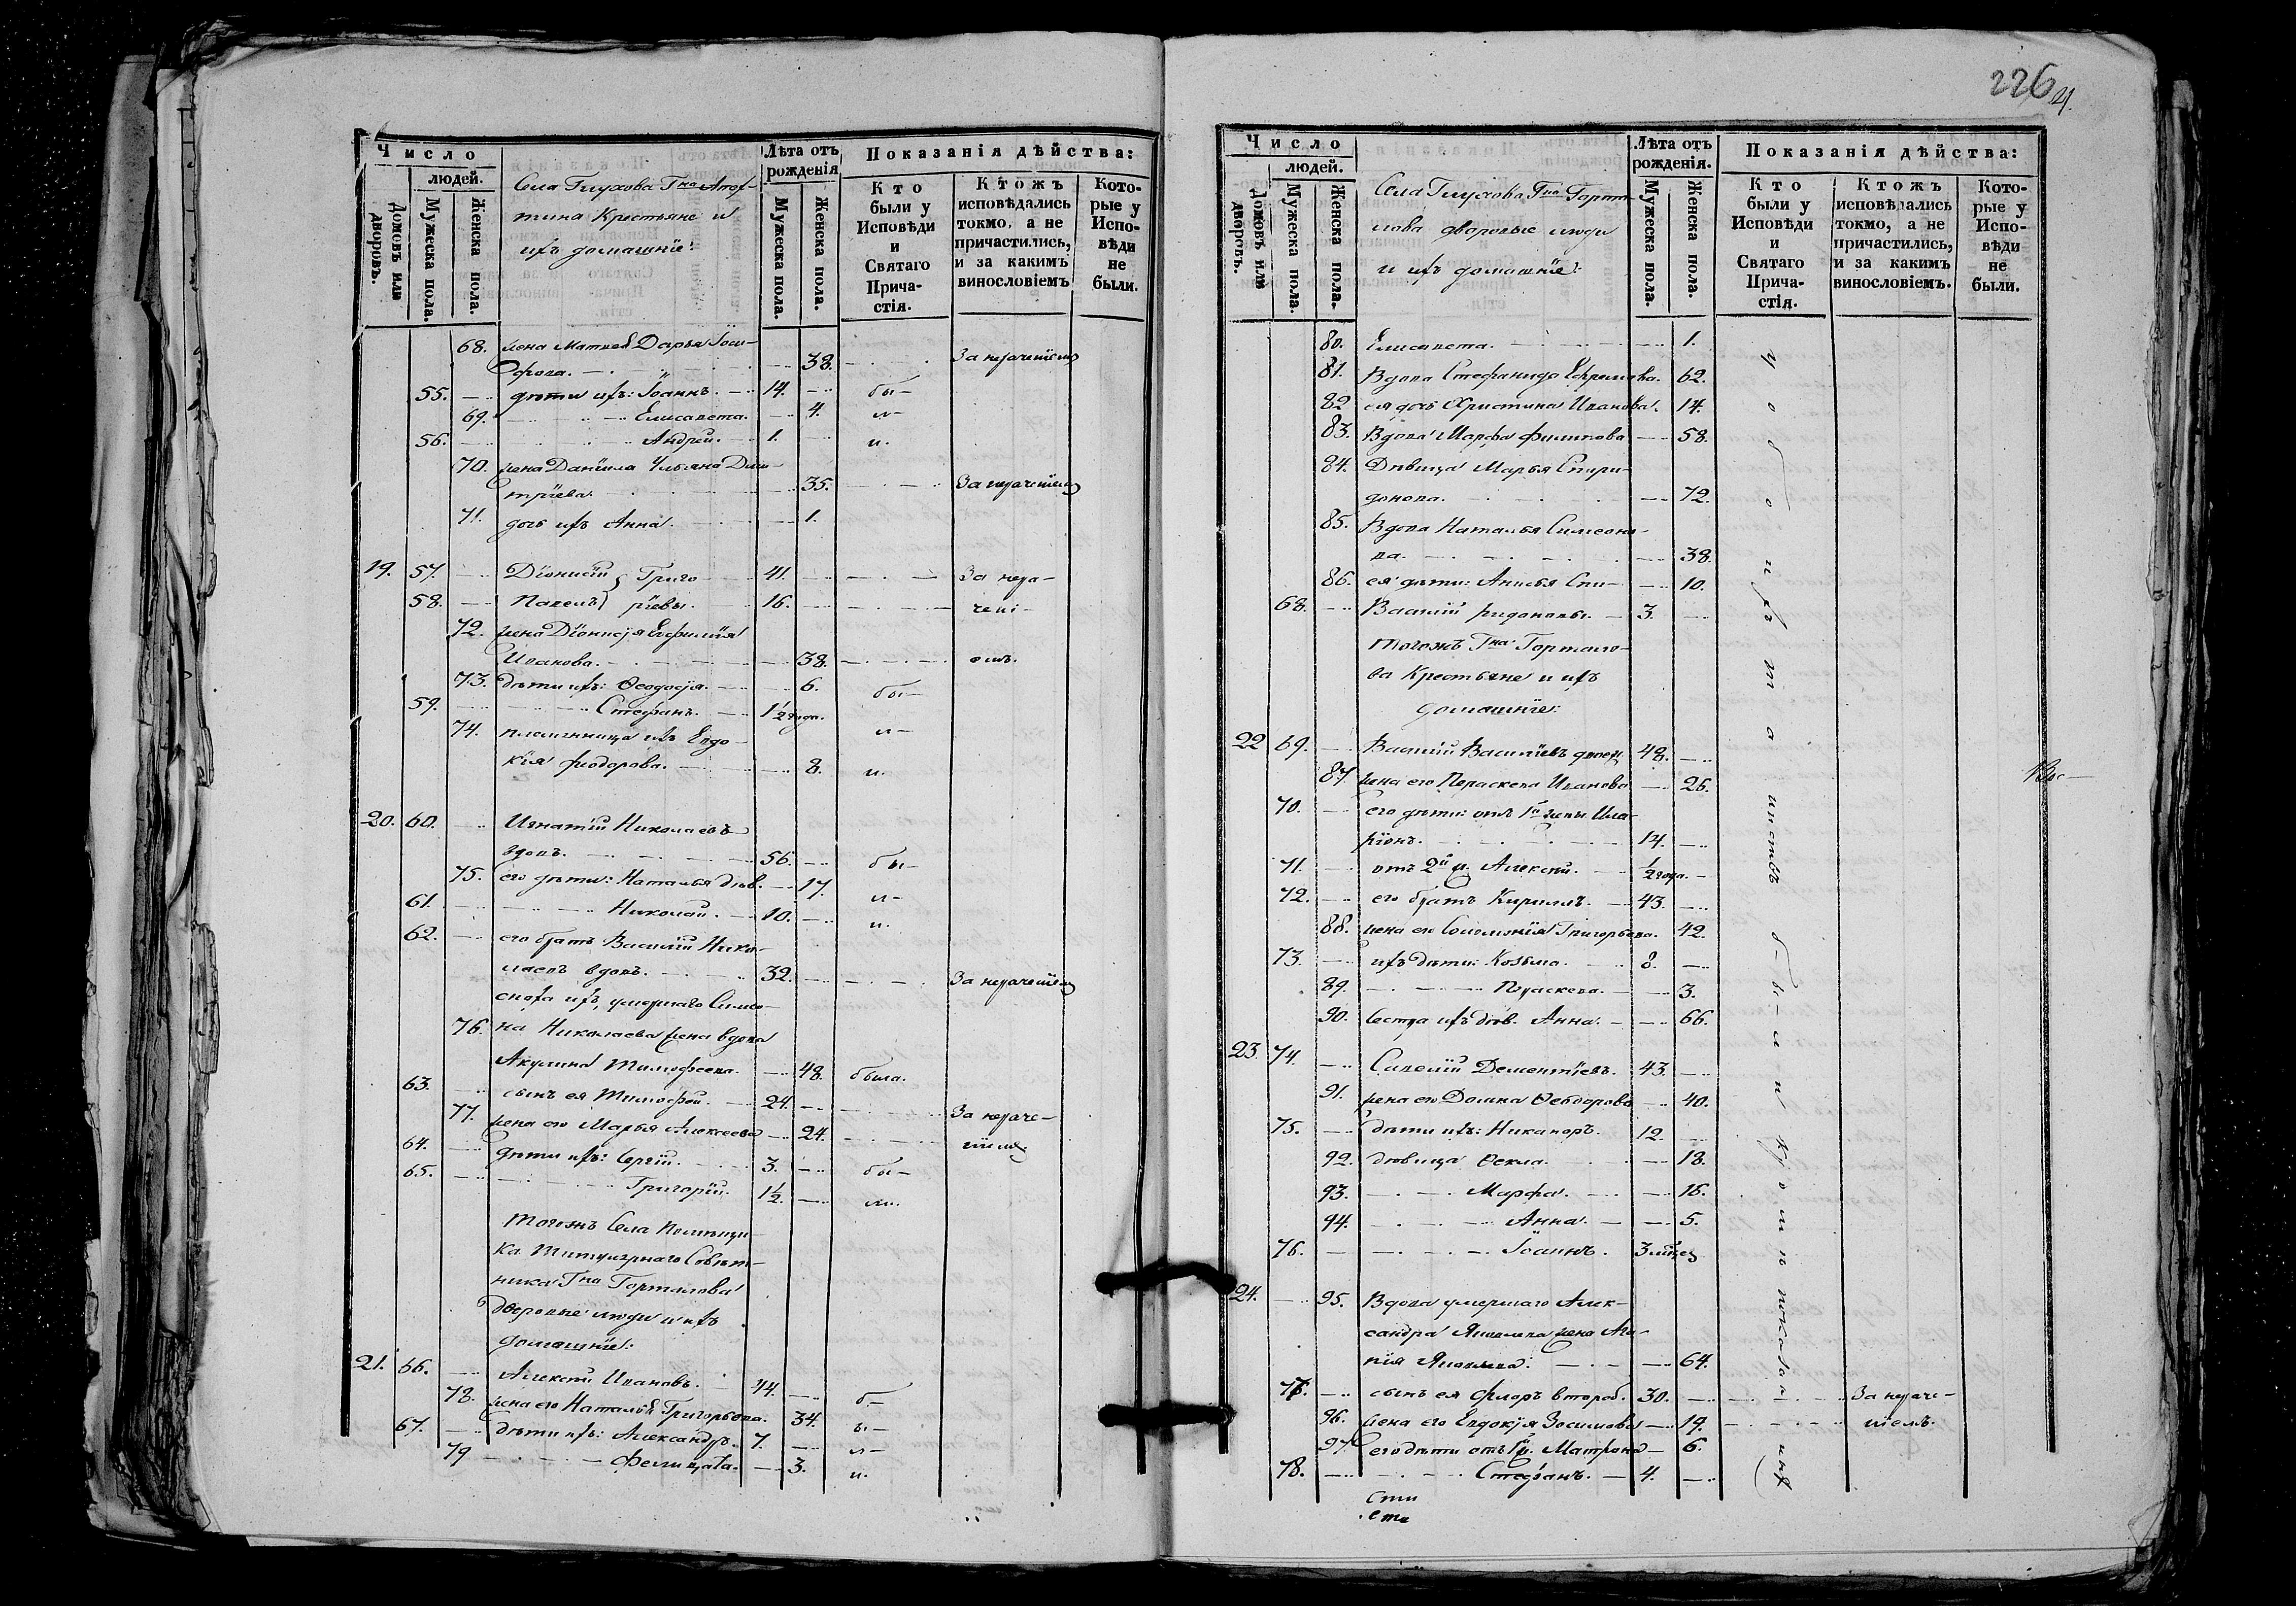 Число
людей.
Домовъ или дворовъ.
Мужеска пола.
Женска пола.
Села Глухова Гна
тина Крестьяне и
ихъ домашніе:
Лѣта отъ рожденія
Мужеска пола.
Женска пола.
Показанія дѣйства:
Кто были у Исповѣди и Святаго Причастія.
Ктожъ исповѣдались токмо, а не причастились, и за какимъ винословіемъ
Которые у Исповѣди не были.
68. жена Матвея Дарья
38. За нераченіемъ
55. дѣти ихъ: Іоаннъ. 14. бы-
69. Елисавета. 4. л-
56. Андрей. 1. и.
70. жена Даніила Ульяна Дми-
тріева. 35. За нераченіемъ
71. дочь ихъ Анна. 1.
19. 57. Діонисій Григо- 41. За нера-
58. Павелъ рьевы. 16. чені-
72. жена Діонисія Евфимія
Иванова. 38. емъ.
73. дѣти ихъ: Ѳеодосія. 6. бы-
59. Стефанъ. 1 1/2 года. л-
74. племянница ихъ Евдо-
кія Феодорова. 8. и.
20. 60. Игнатій Николаевъ
вдовъ. 56. бы-
75. его дѣти: Наталья дѣв. 17. л-
61. Николай. 10. и.
62. его братъ Василій Нико-
лаевъ вдовъ. 32. За нераченіемъ
сноха ихъ, умершаго Симео-
76. на Николаева жена вдова
Акулина Тимофеева. 48. была.
63. сынъ ея Тимофей. 24. За нераче-
77. жена его Марья Алексеева 24. ніемъ
64. дѣти ихъ: Сергій. 3. бы-
65. Григорій. 1 1/2. ли.
Тогожъ Села Помѣщи-
ка Титулярнаго Совѣт-
ника Гна Горталова
дворовые люди и ихъ
домашніе:
21. 66. Алексей Ивановъ. 44. б-
78. жена его Наталья Григорьева. 34. ы-
67. дѣти ихъ: Александръ. 7. л-
79 Фелицата. 3. и.
226
Число
людей.
Домовъ или дворовъ.
Мужеска пола.
Женска пола.
Села Глухова Гна Горта-
лова дворовые люди
и ихъ домашніе:
Лѣта отъ рожденія.
Мужеска пола.
Женска пола.
Показанія дѣйства:
Кто были у Исповѣди и Святаго Причастія.
Ктожъ исповѣдались токмо, а не причастились, и за какимъ винословіемъ.
Которые у Исповѣди не были.
80. Елисавета. 1.
81. Вдова Стефанида Ефремова. 62.
82 ея дочь Христина Иванова. 14.
83. Вдова Марфа Филипова 58.
84. Дѣвица Марья Спири-
донова. 72.
85. Вдова Наталья Симеоно-
ва. 38.
86. ея дѣти: Анисья Спи- 10.
68. Василій ридоновы. 3.
Тогожъ Гна Горталo-
ва Крестьяне и ихъ
домашніе:
22 69. Василій Васильевъ 48.
87 жена его Параскева Иванова 26.
70. его дѣти: отъ 1й жены Ила-
ріонъ. 14.
71. отъ 2й ж. Алексей. 1/2 года.
72. его братъ Кириллъ. 43.
88. жена его Соломонія Григорьева. 42.
73. ихъ дѣти: Козьма. 8.
89. Параскева. 3.
90. Сестра ихъ дѣв. Анна. 66.
23. 74. Савелій Дементіевъ. 43.
91. жена его Домна Ѳеодорова 40.
75. дѣти ихъ: Никаноръ. 12.
92. дѣвица Ѳекла. 18.
93. Марфа. 16.
94. Анна. 5.
76. Іоаннъ.
24. 95. Вдова умершаго Алек-
сандра Яковлева жена Ага-
пія Яковлева. 64.
77. сынъ ея Флоръ второб. 30. За нераче-
96. жена его Евдокія Зосимова 19. ніемъ.
97. его дѣти отъ 1й ж. Матрона 6.
78. Стефанъ. 4.